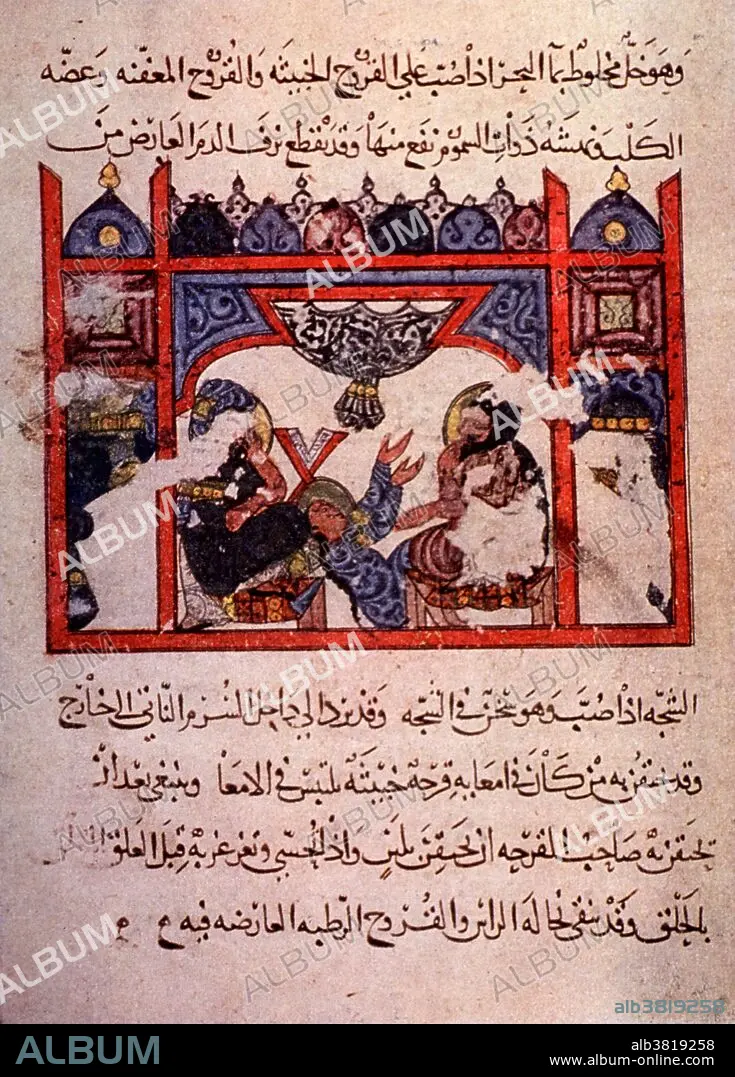 وهو خل مخلوط بماء البحر اذا صب علي القروح الخبيثه والقروح المعفنه وعضه
الكلب ونهشه ذوات السموم نفع منها وقد يقطع نزف الدم العارض من
الشجه اذا صب وهو سخن في الشجه وقد يرد الي داخل السرم الناتي الي خارج
وقد يحتقن به من كان في امعايه قرحه خبيثه في الامعا وينبغي بعد ان
يحتقن به صاحب القرحه ان يحتقن بلبن واذا تحسي وتغرغر به قتل العلق
بالحلق وقد ينقي نخاله الراس والقروح الرطبه العارضه فيه
ALBUM
alb3819258
ALBUM
alb3819258
www.album-online.com